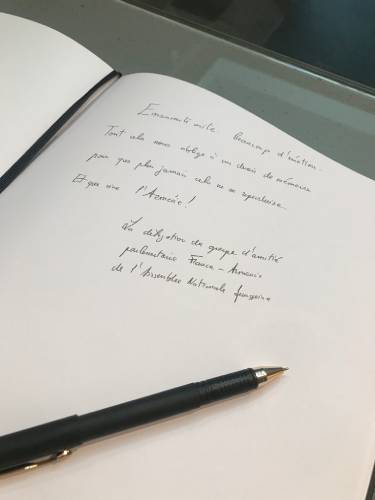 Beaucoup d'émotion.
Tout cela nous oblige à un devoir de mémoire
pour que plus jamais cela ne se reproduise.
Et que vive l'Arménie!
La délégation du groupe d'amitié
parlementaire France-Arménie
de l'Assemblée Nationale française